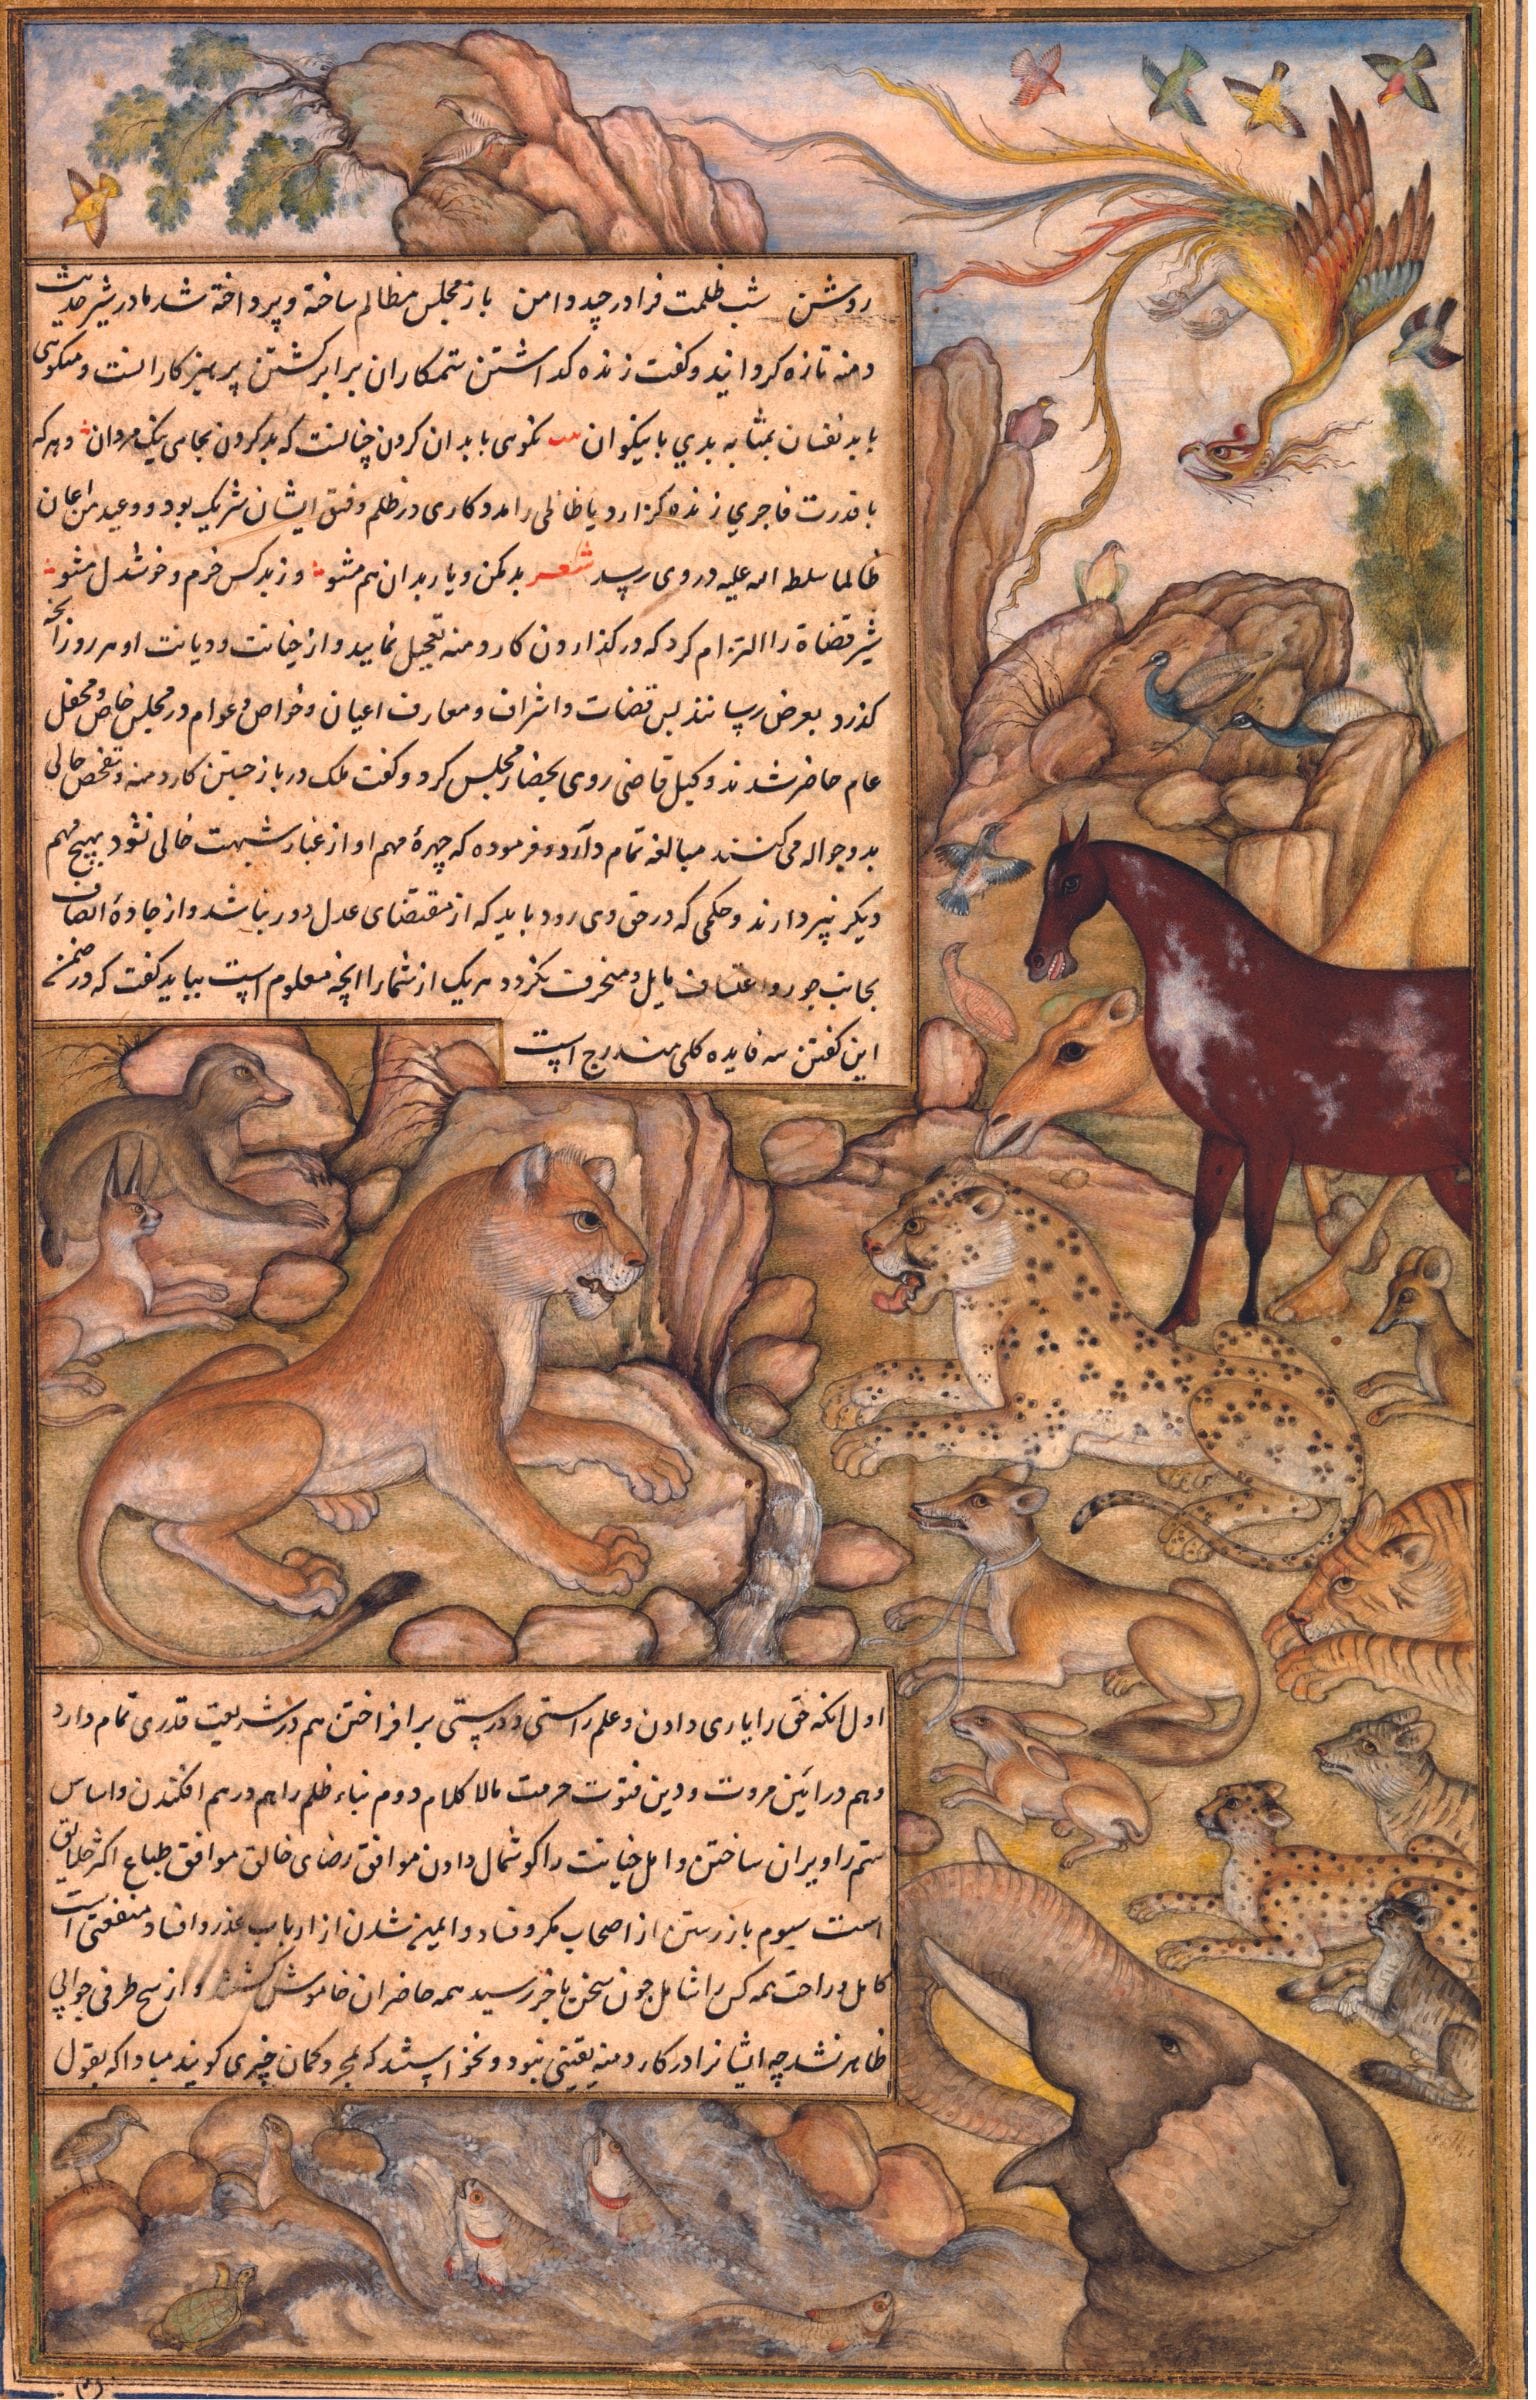 روشن شب ظلمت فرا در چید دامن باز مجلس مظالم ساخته و پرداخته شد مادر شیر حدیث
دمنه تازه کردانید و کفت زنده کداشتن ستمکاران برابر کشتن پرهیزکارانست و نیکویی
با بد نفسان بمثابه بدی با نیکوان بیت نکویی با بدان کردن چنانست که بد کردن بجای نیک مردان و هر که
با قدرت فاجری زنده کزارد یا ظالمی را مددکاری در ظلم و فسق ایشان شریک بود و وعید من اعان
ظالما سلطه الله علیه در وی رسد شعر بد مکن و یار بدان هم مشو وز بد کس خرم و خوشدل مشو
شیر قضاة را الزام کرد که در کذاردن کار دمنه تعجیل نمایید و از خیانت و دیانت او هر روز آنچه
کذرد بعرض رسانند پس قضات و اشراف و معارف اعیان و خواص و عوام در مجلس خاص و محفل
عام حاضر شدند وکیل قاضی روی بحضار مجلس کرد و کفت ملک در باز جستن کار دمنه و تفحص حالی
بدو حواله می کنند مبالغه تمام دارد و فرموده که چهرهٔ مهم او از غبار شبهت خالی نشود بهیچ مهم
دیکر نپردارند و حکمی که در حق وی رود باید که از مقتضای عدل دور نباشد و از جادهٔ انصاف
بجانب جور و اعتساف مایل و منحرف نکردد هر یک از شما را آنچه معلوم است بباید کفت که در ضمن
این کفتن سه فایده کلی مندرج است
اول آنکه حق را یاری دادن و علم راستی و درستی بر افراختن هم در شریعت قدری تمام دارد
و هم در آئین مروت و دین فتوت حرمت مالا کلام دوم بناء ظلم را هم در هم افکندن و اساس
ستم را ویران ساختن و اهل خیانت را کوشمال دادن موافق رضای خالق موافق طباع اکثر خلایق
است سیوم باز رستن از اصحاب مکر و فساد و ایمن شدن از ارباب غدر و افساد منفعتی است
کامل و راحت همه کس را شامل چون سخن باخر رسید همه حاضران خاموش کشتند و از هیچ طرفی جوابی
ظاهر نشد چه ایشانرا در کار دمنه یقینی نبود و نخواستند که بمجرد کمان چیزی کویند مبادا که بقول